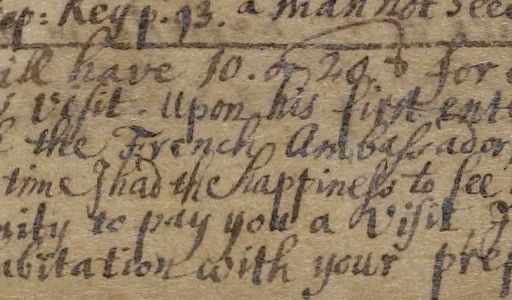 Key p. 93. a man not see
ill have 10. or 20. s for
visit. Upon his first ent
the French Ambassador
time I had the happiness to see
nity to pay you a Visit
abitation with your pre